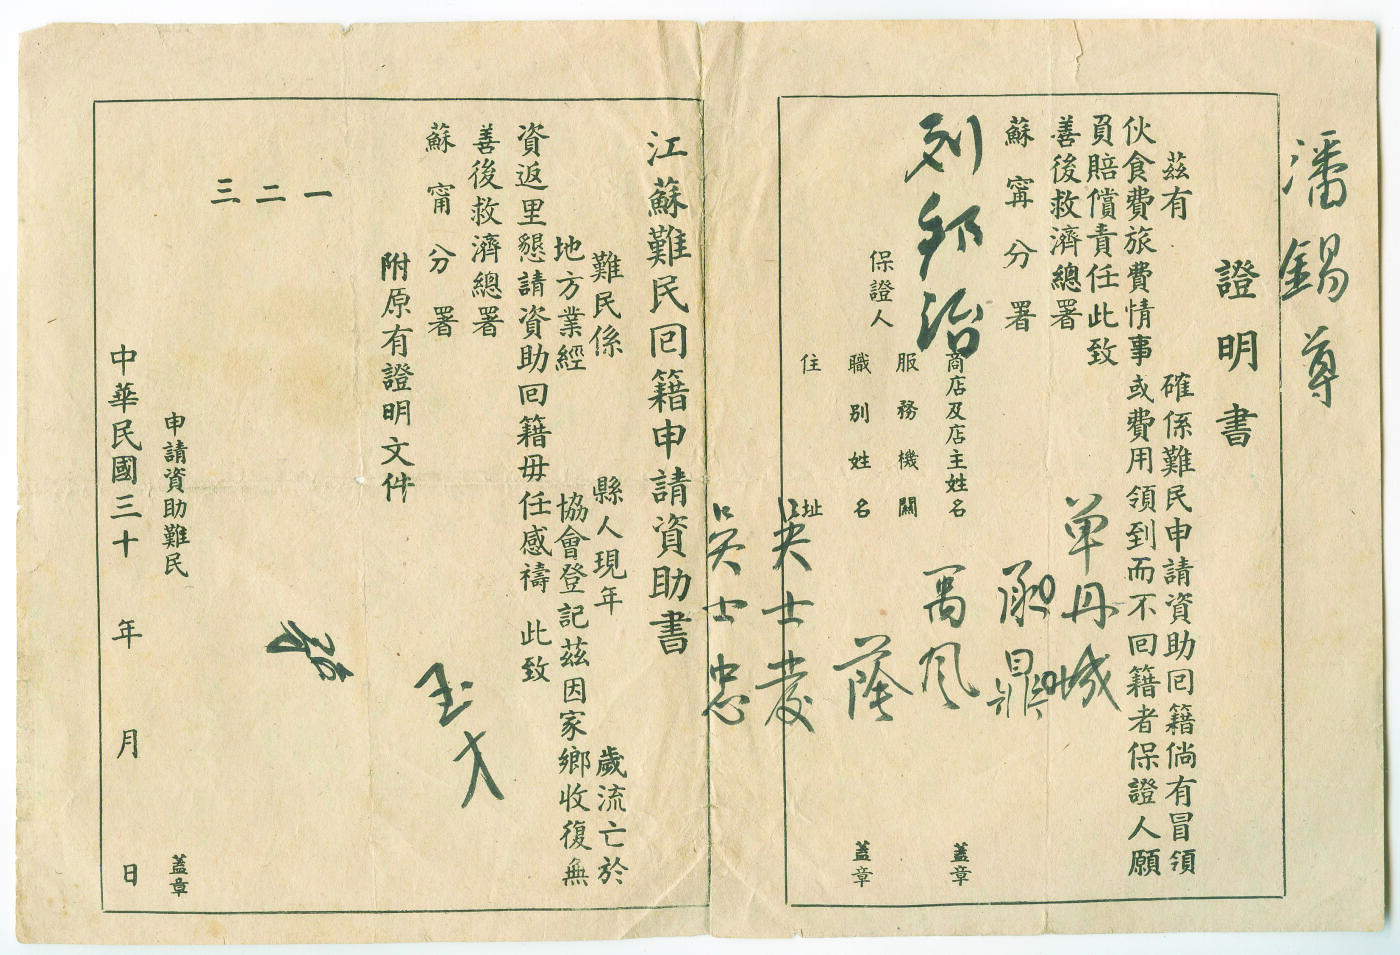 潘錫尊
證明書
茲有 確係難民申請資助回籍倘有冒領
伙食費旅費情事或費用領到而不回籍者保證人願
負賠償責任此致
善後救濟總署
蘇甯分署
單丹城
鼎
列邦治
商店及店主姓名
蓋章
保證人
服務機關
職別姓名
蓋章
住址
吳士忠
江蘇難民回籍申請資助書
難民係 縣人現年 歲流亡於
地方業經 協會登記茲因家鄉收復無
資返里懇請資助回籍毋任感禱 此致
善後救濟總署
蘇甯分署
附原有證明文件
一
二
三
申請資助難民 蓋章
中華民國三十 年 月 日